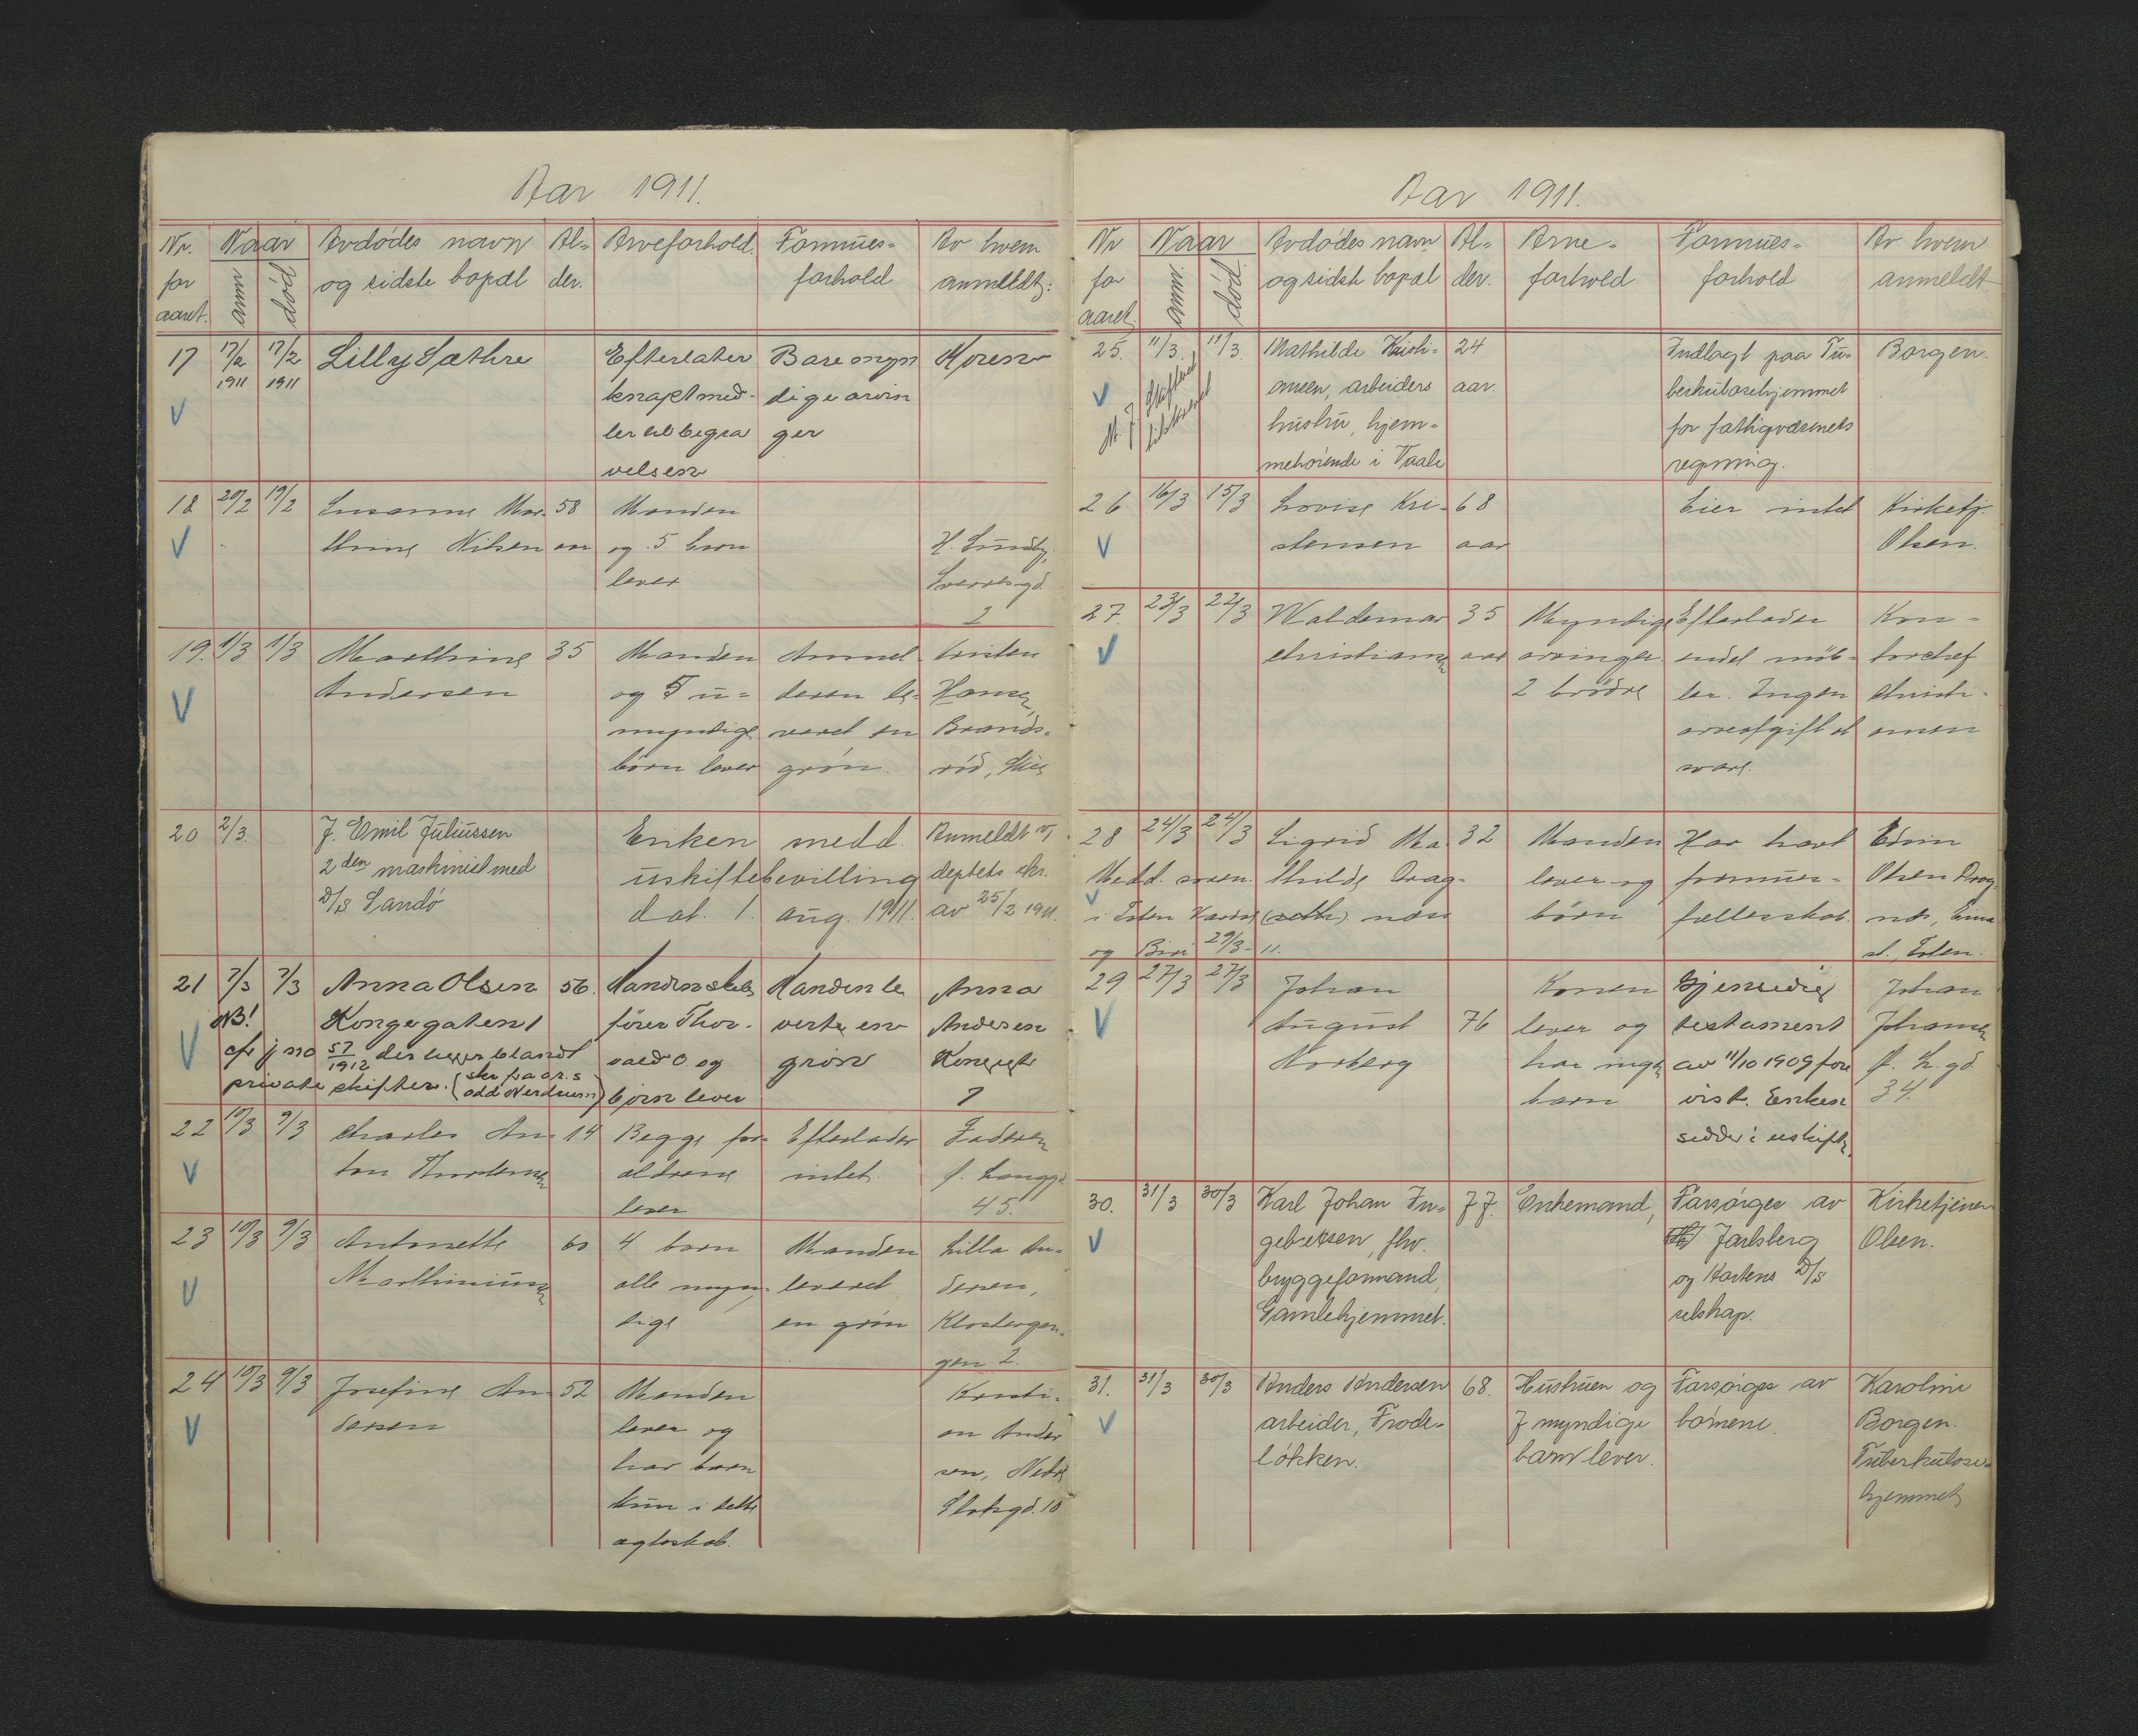 Aar 1911.
Nr. for aaret. Naar anm død Avdødes navn og sidste bopæl Al-der. Arveforhold. Formues-forhold Av hvem anmeldt:
17 17/2 1911 17/2 1911 Lilly Sæthre
Efterlater
knapt med-
ler til begra
velsen
Bare myn
dige arvin
ger
Konen
18 20/2 19/2 Susanne Mar-
thine Nilsen
58
aar
Manden
og 5 barn
lever
H. Lundby,
Sverresgd.
2
19. 1/3 1/3 Marthine
Andersen
35
Manden
og 5 u-
myndige
børn lever
Anmel-
deren le-
veret en
grøn.
Kristen
Hansen,
Brands-
rød,
20 2/3. J. Emil Juliussen
2den maskinist med
D/S Sandø
Enken medd.
uskiftebevilling
dat. 1. aug. 1911.
Anmeldt v/
deptets skr.
av 25/2 1911.
21 7/3 7/3 Anna Olsen
Kongegaten 1
56.
NB!
cfr j no 57/1912 der ligger blandt
private skifter. (skr fra o.r.s.
odd Nerdrum)
Manden
fører Thor-
vald O. og
børn lever
Manden le
verte en
grøn
Anna
Andersen
Kongegt
7
22 10/3 9/3 Charles An-
ton
14
Begge for-
ældrene
lever
Efterlader
intet.
Faderen
f. Langgd.
45.
23 10/3 9/3 Antonette
Marthiniussen
60
4 barn
alle myn-
dige
Manden
leveret
en grøn
Lilla An-
dersen,
Klostergan-
gen 2.
24 10/3 9/3 Josefine An-
dersen
52
Manden
lever og
har barn
kun i dette
ægteskab.
Kristi-
an Ander
sen, Nedre
Slotsgd. 10
Aar 1911.
Nr for aaret. Naar anm død. Avdødes navn og sidste bopæl Al-der. Arve-forhold Formues-forhold Av hvem anmeldt
25. 11/3. 11/3. Mathilde Kristi-
ansen, arbeiders
hustru, hjem-
mehørende i Vaale
24
aar.
Indlagt paa Tu-
berkulosehjemmet
for fattigvæsenets
regning.
Borgen.
26 16/3 15/3 Lovise Kri-
stensen
68
aar
Eier intet
Kirketj.
Olsen.
27. 23/3 22/3 Waldemar
Christiansen
35
aar
Myndige
arvinger
2 brødre
Efterlader
endel møb-
ler. Ingen
arveafgift at
svare.
Kon-
torchef
Christi-
ansen
28 24/3 24/3 Sigrid Ma-
thilde Drag-
næs
32
Medd. soren.
i Østen
og Biri 29/3-11.
Manden
lever og
børn
Har havt
formues-
fællesskab.
Edvin
Olsen Drag
næs, Eina
st., Toten.
29 27/3 27/3 Johan
August
Norberg
76
Konen
lever og
har ingen
barn
Gjensidig
testament
av 11/10 1909 fore
vist. Enken
sidder i uskifte.
Johan
Johansen
f. L. gd.
34.
30. 31/3 30/3 Karl Johan In-
gebretsen, fhv.
bryggeformand,
Gamlehjemmet.
77.
Enkemand,
Forsørges av
Jarlsberg
og Hortens D/S
selskap.
Kirketjener
Olsen.
31. 31/3 30/3 Anders Andersen
arbeider, Frode-
løkken.
68.
Hustruen og
7 myndige
barn lever.
Forsørges av
børnene.
Karoline
Borgen.
Tuberkulose-
hjemmet